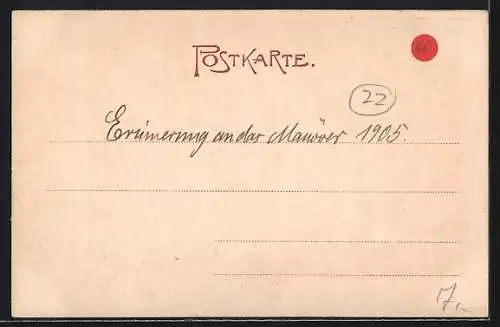 POSTKARTE.
22
Erinnerung an das Manöver 1905.
7,-